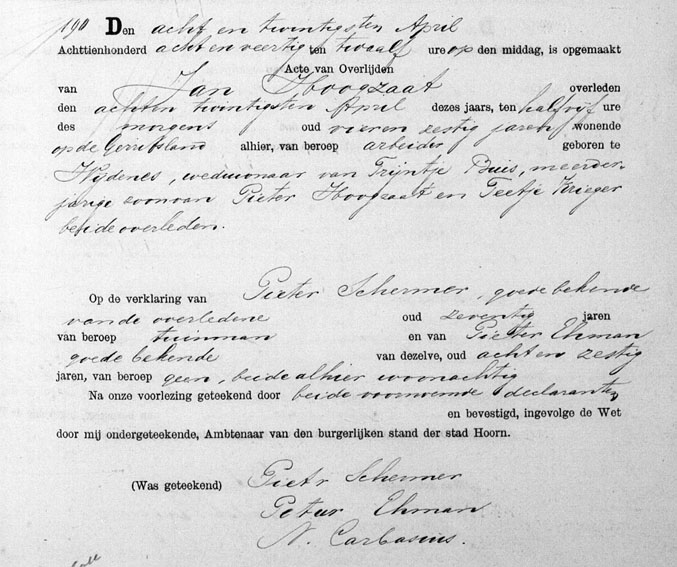 190 Den acht en twintigsten April
Achttienhonderd acht en veertig ten twaalf ure op den middag, is opgemaakt
Acte van Overlijden
van Jan Hoogzaat overleden
den achten twintigsten April dezes jaars, ten half vijf ure
des morgens oud vier en zestig jaren, wonende
op de Gerritsland alhier, van beroep arbeider geboren te
Wijdenes, weduwnaar van Trijntje Buis, meerder-
jarige zoon van Pieter Hoogzaat en Teetje Krieger
beide overleden.
Op de verklaring van Pieter Schermer, goede bekende
van de overledene oud zeventig jaren
van beroep tuinman en van Pieter Ehman
goede bekende van dezelve, oud acht en zestig
jaren, van beroep geen, beide alhier woonachtig
Na onze voorlezing geteekend door beide voornoemde declaranten
en bevestigd, ingevolge de Wet
door mij ondergeteekende, Ambtenaar van den burgerlijken stand der stad Hoorn.
(Was geteekend) Pietr Schermer
Peter Ehman
N. Carbasius.